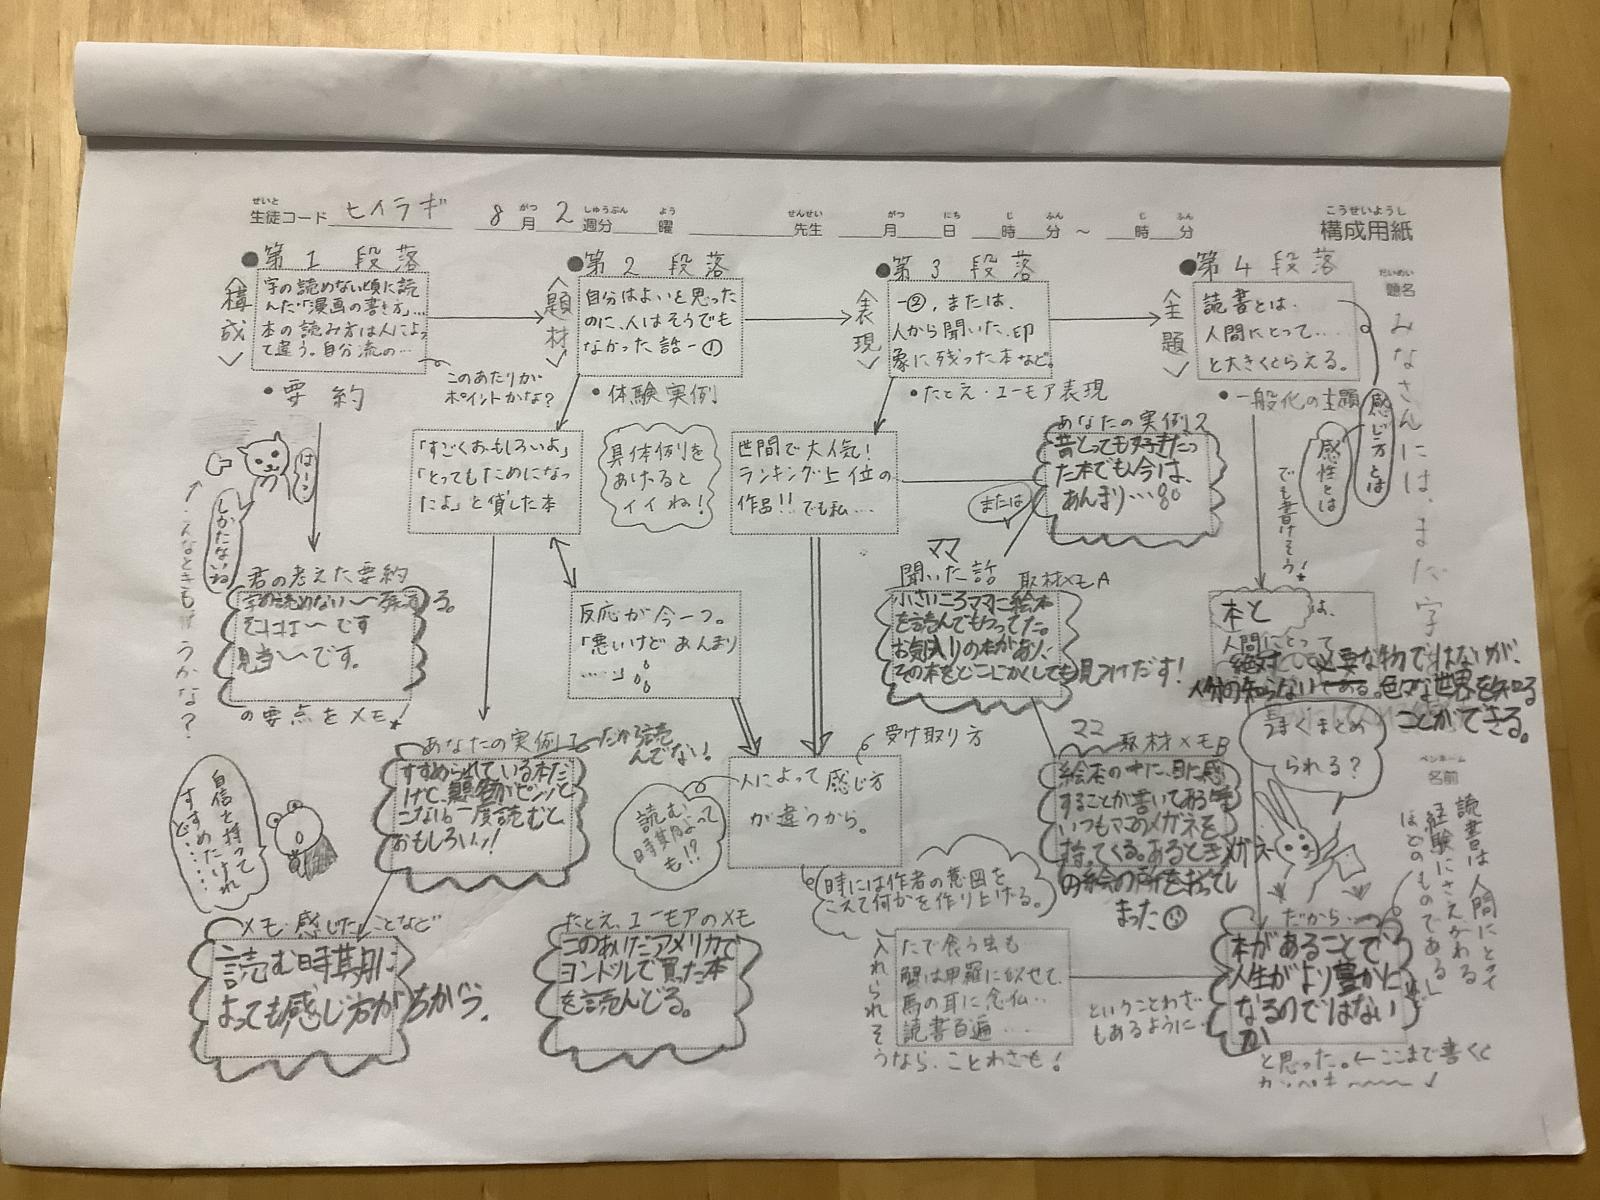 せいと がつ しゅうぶん よう せんせい がつ にち じ ふん じ ふん こうせいようし
生徒コード ヒイラギ 8月2週分 曜 先生 月 日 時 分 ～ 時 分 構成用紙
●第1段落
〈構成〉
字の読めない頃に読
んだ「漫画の書き方」…
本の読み方は人によっ
て違う。自分流の…
このあたりが
ポイントかな？
・要約
はーい
しかたないね
君の考えた要約
字の読めない〜
〜です
見当〜です。
の要点をメモ
●第2段落
〈題材〉
自分はよいと思った
のに、人はそうでも
なかった話―①
・体験実例
「すごくおもしろいよ」
「とってもためになっ
たよ」と貸した本
具体例を
あげると
イイね！
反応が今一つ。
「悪いけどあんまり
……」
あなたの実例1
だから読
んでない！
すすめられている本だ
けど、題名がピンッと
こない。一度読むと
おもしろいッ！
自信を持って
すすめたけれ
ど……
メモ・感じたことなど
読む時期に
よっても感じ方がちがう。
●第3段落
〈表現〉
―②、または、
人から聞いた、印
象に残った本など。
・たとえ・ユーモア表現
世間で大人気！
ランキング上位の
作品!!でも私…
または
あなたの実例2
昔とっても好きだっ
た本でも今は、
あんまり…
ママ
聞いた話 取材メモA
小さいころママに絵本
を読んでもらってた。
お気に入りの本があり、
その本をどこにかくしても見つけだす！
受け取り方
人によって感じ方
が違うから。
読む
時期よって
も!?
ママ 取材メモB
絵本の中に、目に感
することが書いてある時
いつもママのメガネを
持ってくる。あるときメガネ
の絵の所をおってし
まった
時には作者の意図を
こえて何かを作り上げる。
たとえ、ユーモアのメモ
このあいだアメリカで
ヨンドルで買った本
を読んどる。
たで食う虫も
蟹は甲羅に似せて、
馬の耳に念仏…
読書百遍……
入れられそうなら、ことわざも！
ということわざ
もあるように…
●第4段落
〈主題〉
読書とは、
人間にとって……
と大きくとらえる。
・一般化の主題
感じ方とは
感性とは
でも書けそう！
本と は、
人間にとって
絶対 必要な物ではないが、
自分の知らない 色々な世界を知る
ことができる。
うまくまとめ
られる？
だから…
本があることで
人生がより豊かに
なるのではない
か
と思った。←ここまで書くと
だいめい
題名
みなさんには、まだ字
ペンネーム
名前
読書は人間にとって
経験にさえかわる
ほどのものである